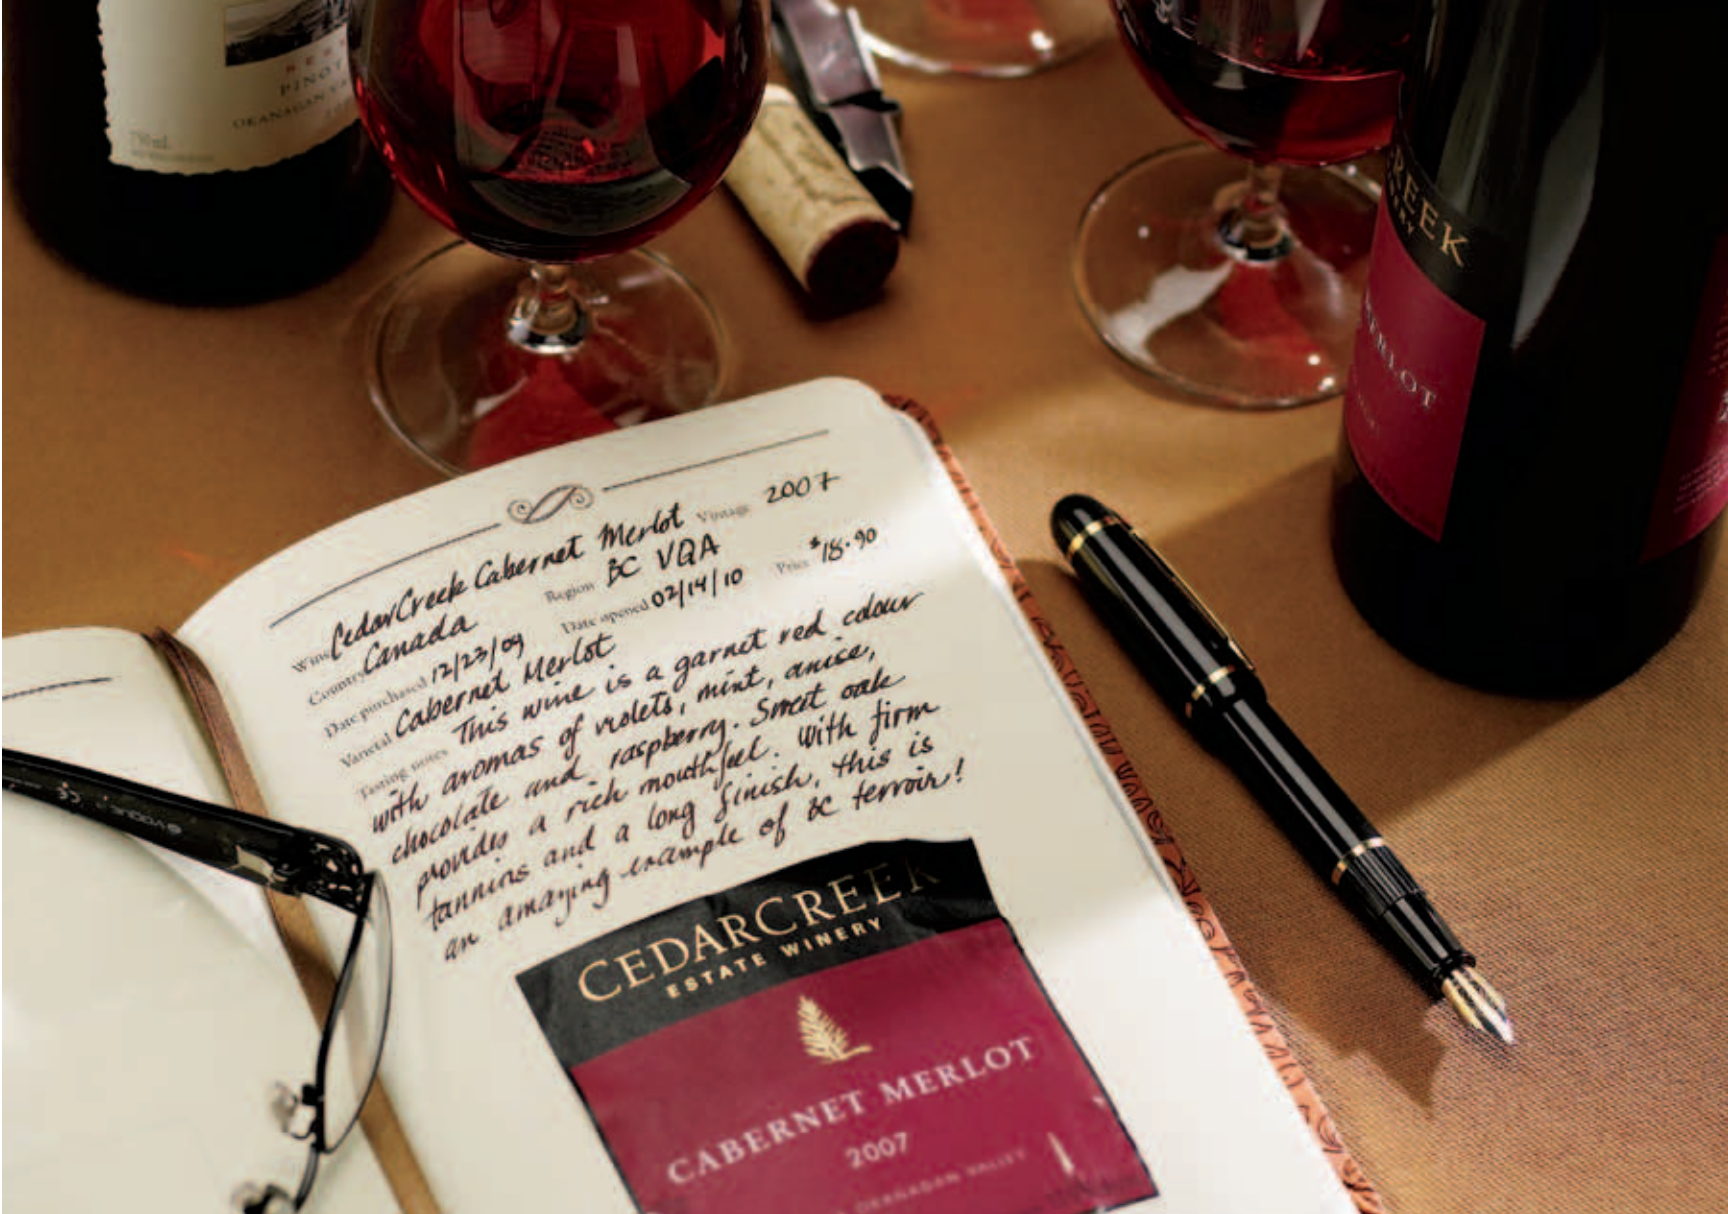 PINOT
OKANAGAN
750 mL
REEK
MERLOT
Wine CedarCreek Cabernet Merlot Vintage 2007
Country Canada Region BC VQA
Date purchased 12/23/09 Date opened 02/14/10 Price $18.90
Varietal Cabernet Merlot
Tasting notes This wine is a garnet red colour
with aromas of violets, mint, anise,
chocolate and raspberry. Sweet oak
provides a rich mouthfeel. With firm
tannins and a long finish, this is
an amazing example of BC terroir!
CEDARCREEK
ESTATE WINERY
CABERNET MERLOT
2007
OKANAGAN VALLEY
VOGUE CE